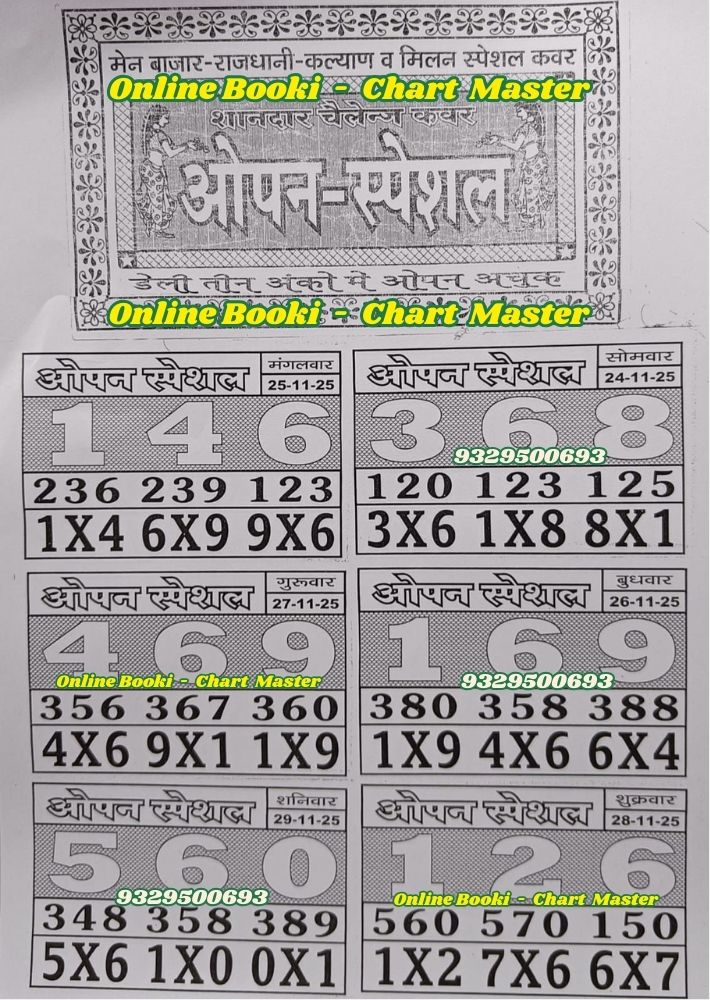 मेन बाजार-राजधानी-कल्याण व मिलन स्पेशल कवर
Online Booki - Chart Master
शानदार चैलेन्ज कवर
ओपन-स्पेशल
डेली तीन अंको मे ओपन अचुक
Online Booki - Chart Master
ओपन स्पेशल
मंगलवार
25-11-25
1 4 6
236 239 123
1X4 6X9 9X6
ओपन स्पेशल
सोमवार
24-11-25
3 6 8
9329500693
120 123 125
3X6 1X8 8X1
ओपन स्पेशल
गुरुवार
27-11-25
4 6 9
Online Booki - Chart Master
356 367 360
4X6 9X1 1X9
ओपन स्पेशल
बुधवार
26-11-25
1 6 9
9329500693
380 358 388
1X9 4X6 6X4
ओपन स्पेशल
शनिवार
29-11-25
5 6 0
9329500693
348 358 389
5X6 1X0 0X1
ओपन स्पेशल
शुक्रवार
28-11-25
1 2 6
Online Booki - Chart Master
560 570 150
1X2 7X6 6X7